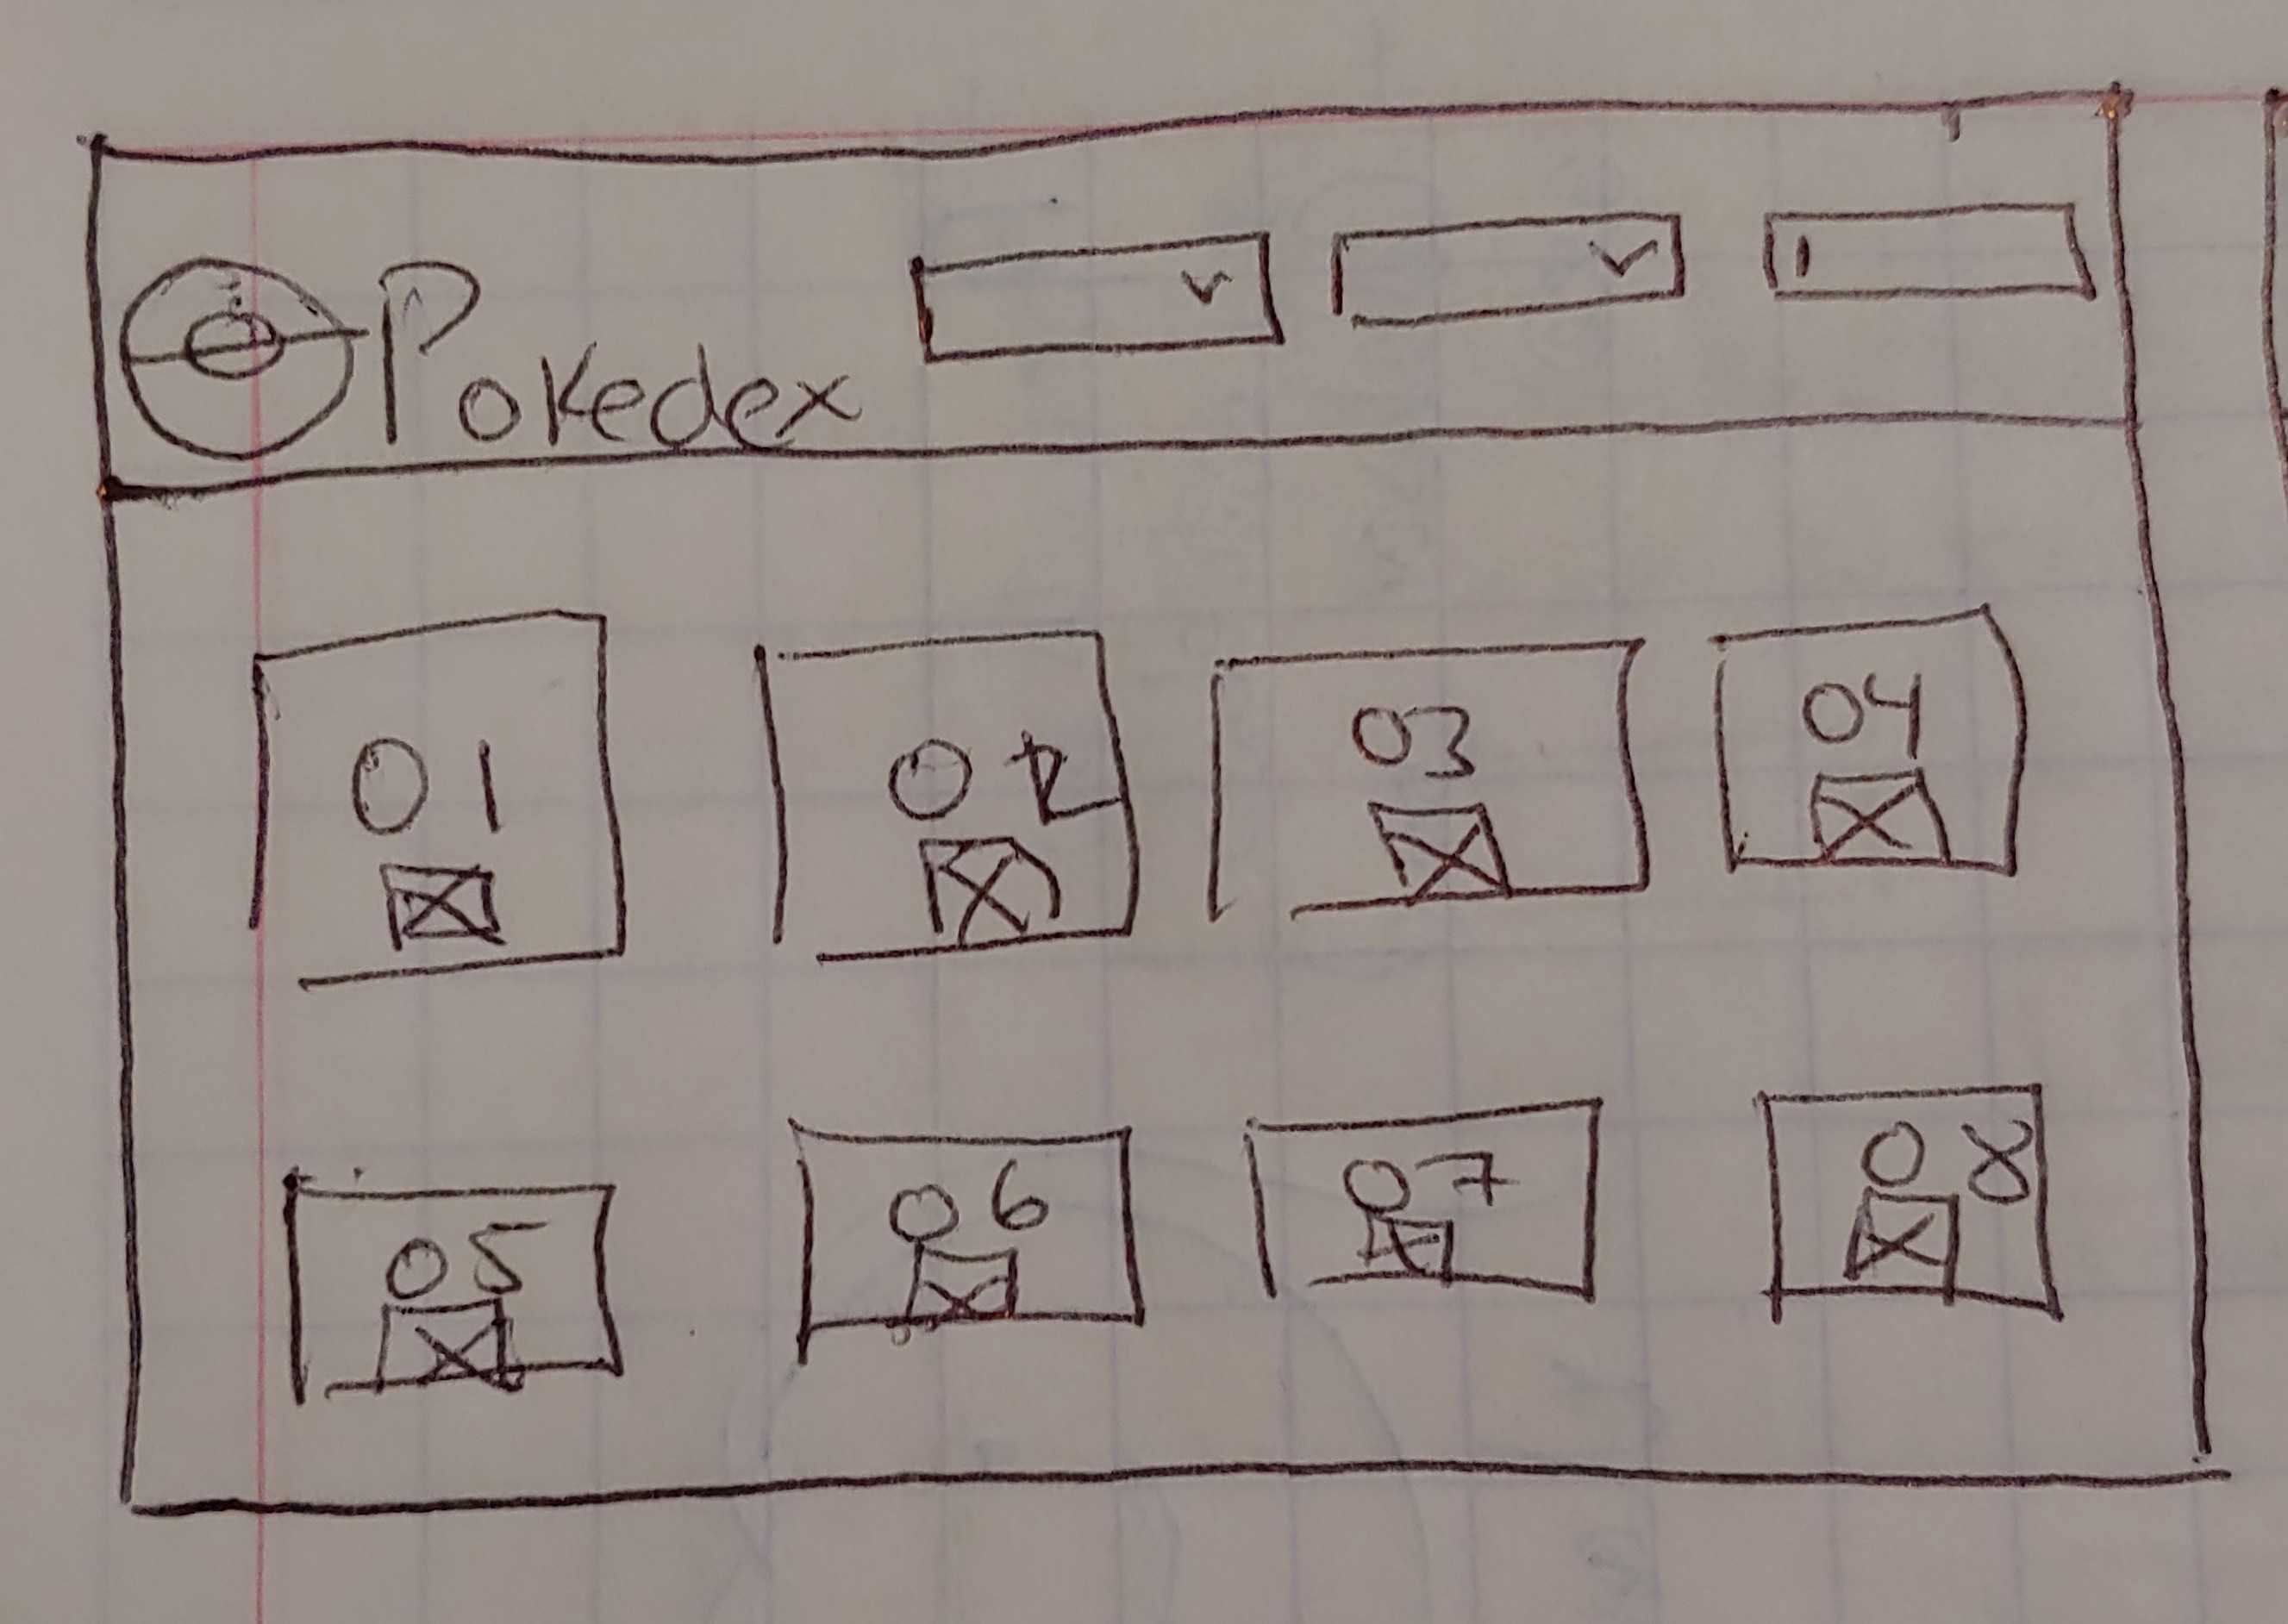 Pokedex
01 02 03 04
05 06 07 08